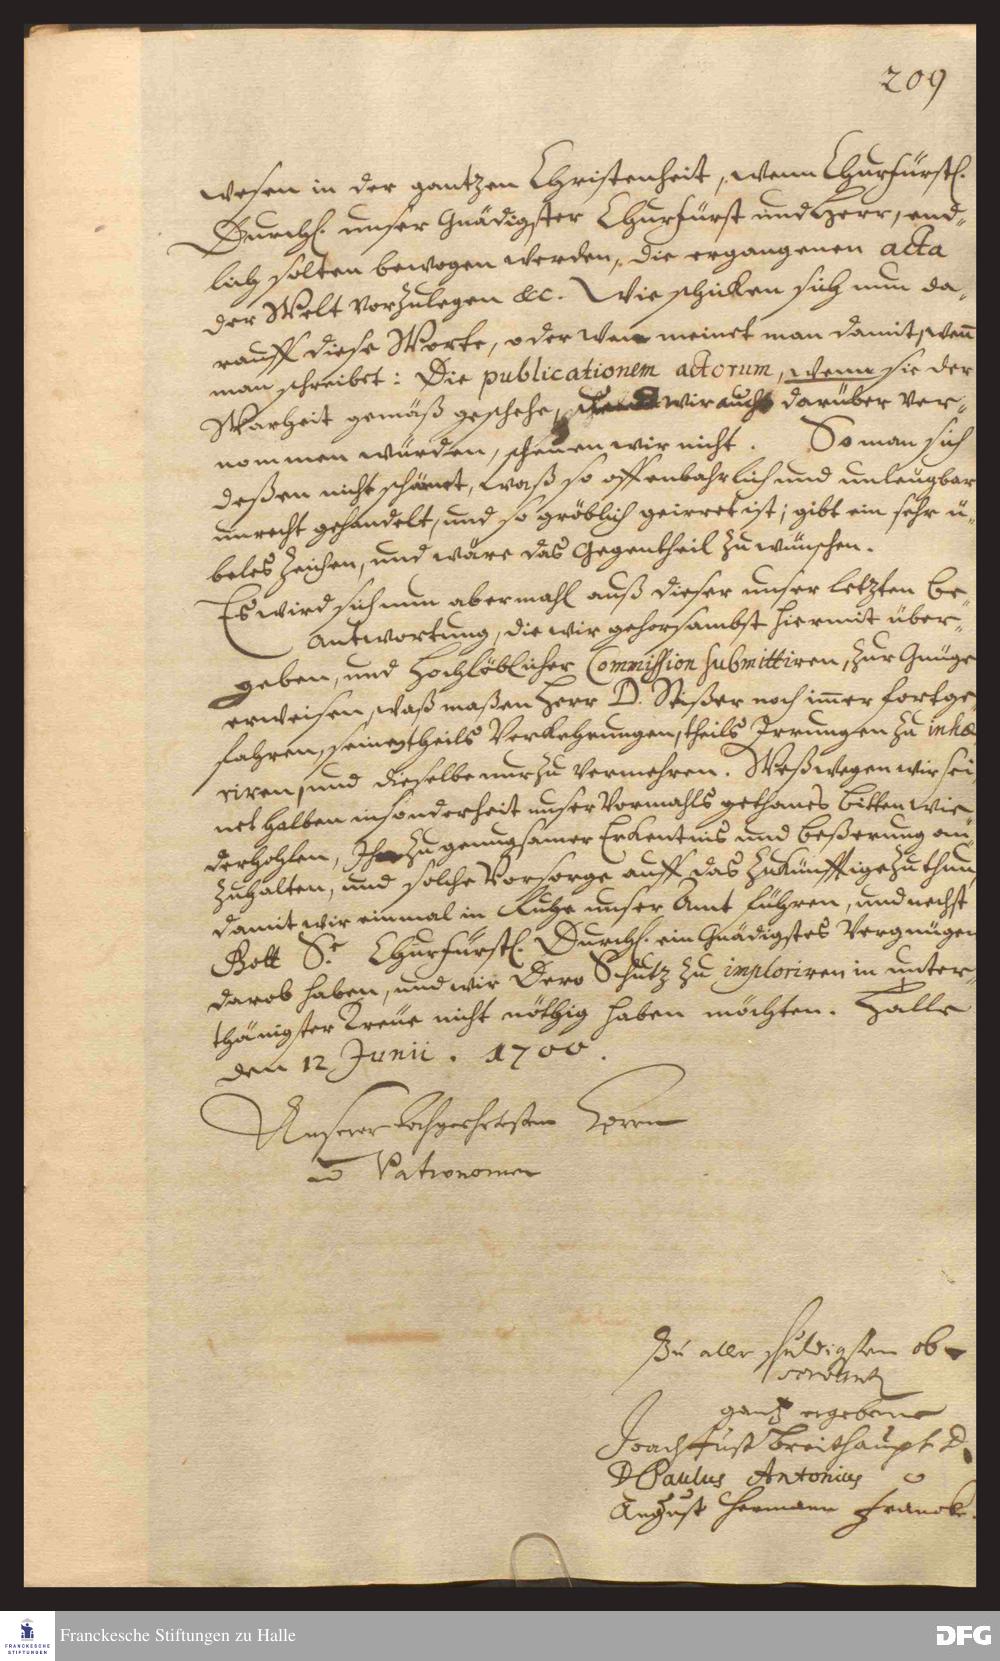 209
wesen in der gantzen Christenheit, wenn Churfürstl.
Durchl. unser Gnädigster Churfürst und Herr, end-
lich solten bewogen werden, die ergangenen acta
der Welt vorzulegen &c. Wie schicken sich nun da-
rauff diese Worte, oder wen meinet man damit, wenn
man schreibet: Die publicationem actorum, wenn sie der
Warheit gemäß geschehe, wir auch darüber ver-
nommen würden, scheuen wir nicht. So man sich
deßen nicht schämet, waß so offenbahrlich und unleugbar
unrecht gehandelt, und so gröblich geirret ist; gibt ein sehr ü-
beles Zeichen, und wäre das Gegentheil zu wünschen.
Es wird sich nun abermahl auß dieser unser letzten Be-
antwortung, die wir gehorsambst hiermit über-
geben, und Hochlöblicher Commission submittiren, zur Gnüge
erweisen, waß maßen Herr D. Stißer noch immer fortge-
fahren, seines theils Verkehrungen, theils Irrungen zu inhæ-
riren, und dieselbe nur zu vermehren. Weßwegen wir sei-
net halben insonderheit unser vormahls gethanes bitten wie-
derhohlen, Ihn zu genugsamer Erkentnis und beßerung an-
zuhalten, und solche Vorsorge auff das Zukünfftige zu thun,
damit wir einmal in Ruhe unser Amt führen, und nechst
Gott Sr. Churfürstl. Durchl. ein Gnädigstes Vergnügen
darob haben, und wir Dero Schutz zu imploriren in unter-
thänigster Treue nicht nöthig haben möchten. Halle
den 12 Junii. 1700.
Unserer hochgeehrtesten Herrn
u Patronomen
Zu aller schuldigsten ob-
servantz
gantz ergebene
Joach Just Breithaupt D.
D Paulus Antonius
August Hermann Francke.
FRANCKESCHE STIFTUNGEN
Franckesche Stiftungen zu Halle
DFG